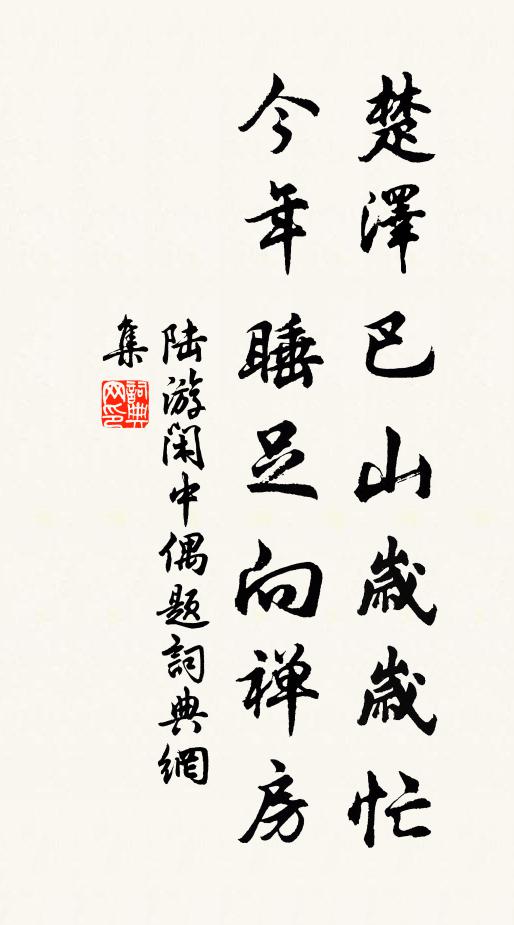 楚澤巴山歲歲忙
今年睡足向禅房
陆游閑中偶题詞典網
集
詞典
网印